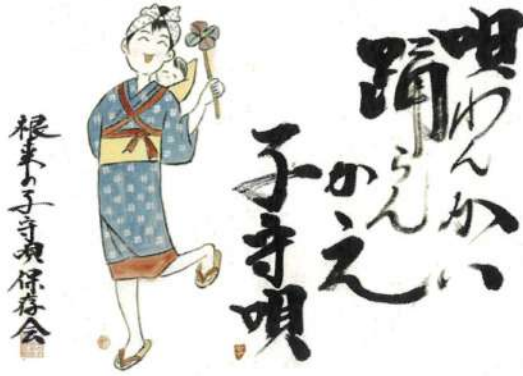 唄わんかい
踊らん
かえ
子守唄
根来の子守唄保存会